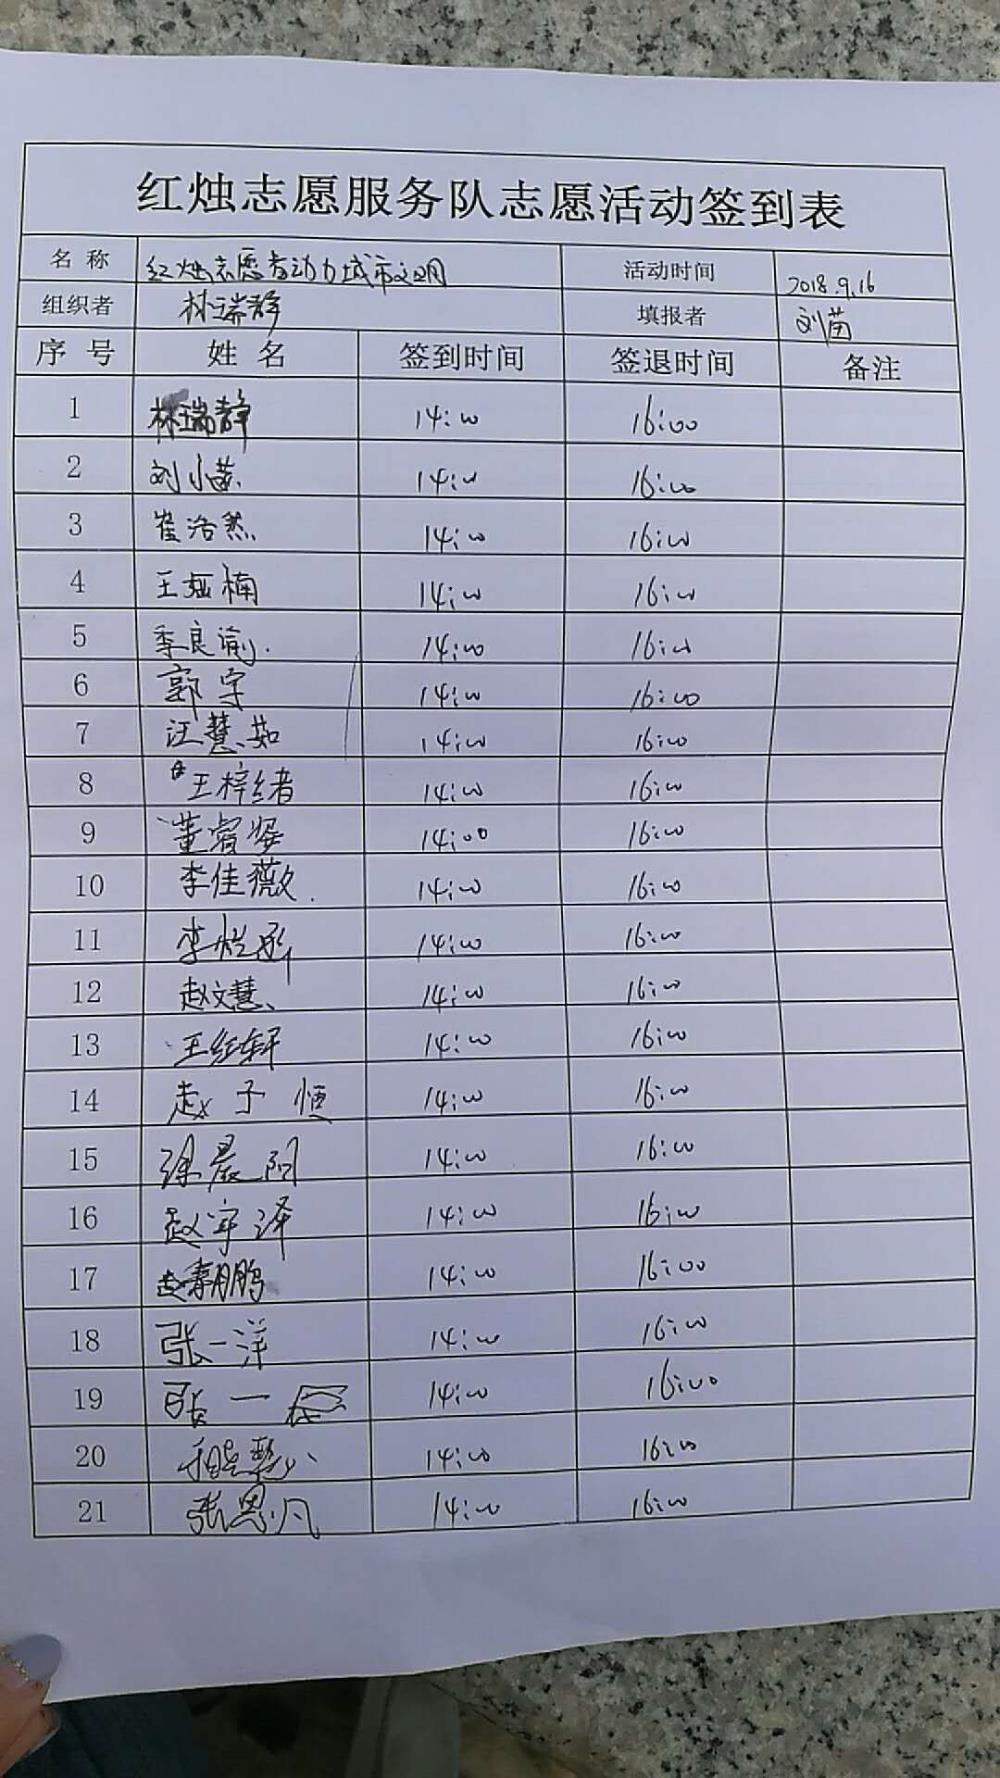 红烛志愿服务队志愿活动签到表
名 称 红烛志愿者动力城市文明 活动时间 2018.9.16
组织者 林瑞静 填报者 刘茵
序 号 姓 名 签到时间 签退时间 备注
1 林瑞静 14:00 16:00
2 刘小茵 14:00 16:00
3 崔浩然 14:00 16:00
4 王 楠 14:00 16:00
5 季良渝 14:00 16:00
6 郭宇 14:00 16:00
7 汪慧茹 14:00 16:00
8 王梓绪 14:00 16:00
9 董睿姿 14:00 16:00
10 李佳薇 14:00 16:00
11 李 14:00 16:00
12 赵文慧 14:00 16:00
13 王红轩 14:00 16:00
14 赵子恒 14:00 16:00
15 徐晨阳 14:00 16:00
16 赵宇泽 14:00 16:00
17 赵朝鹏 14:00 16:00
18 张一洋 14:00 16:00
19 张一 14:00 16:00
20 14:00 16:00
21 张思凡 14:00 16:00